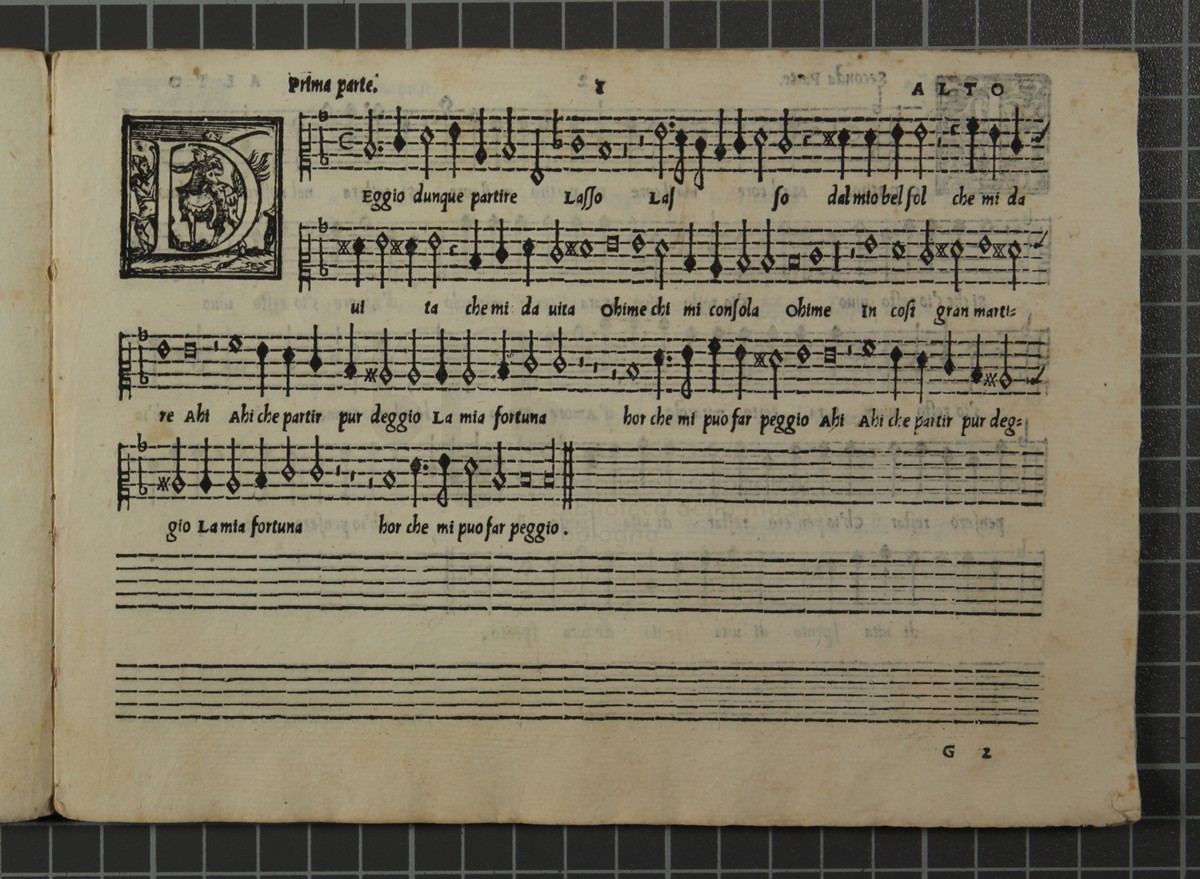 Prima parte. 1 ALTO
DEggio dunque partire Laſſo Laſ ſo dal mio bel ſol che mi da
ui ta che mi da uita Ohime chi mi conſola Ohime In coſi gran marti=
re Ahi Ahi che partir pur deggio La mia fortuna hor che mi puo far peggio Ahi Ahi che partir pur deg=
gio La mia fortuna hor che mi puo far peggio.
G 2